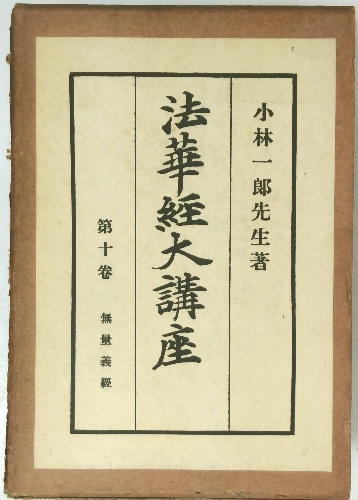 小林一郎先生著
法華經大講座
第十卷 無量義經